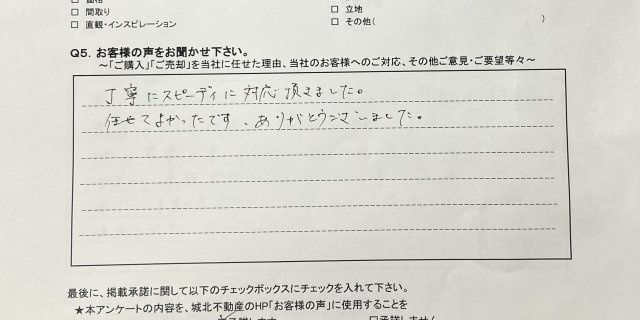 □ 間取り
□ 直観・インスピレーション
□ 立地
□ その他(　　　)
Q5. お客様の声をお聞かせ下さい。
～「ご購入」「ご売却」を当社に任せた理由、当社のお客様へのご対応、その他ご意見・ご要望等々～
丁寧にスピーディに対応頂きました。
任せてよかったです、ありがとうございました。
最後に、掲載承諾に関して以下のチェックボックスにチェックを入れて下さい。
★本アンケートの内容を、城北不動産のHP「お客様の声」に使用することを